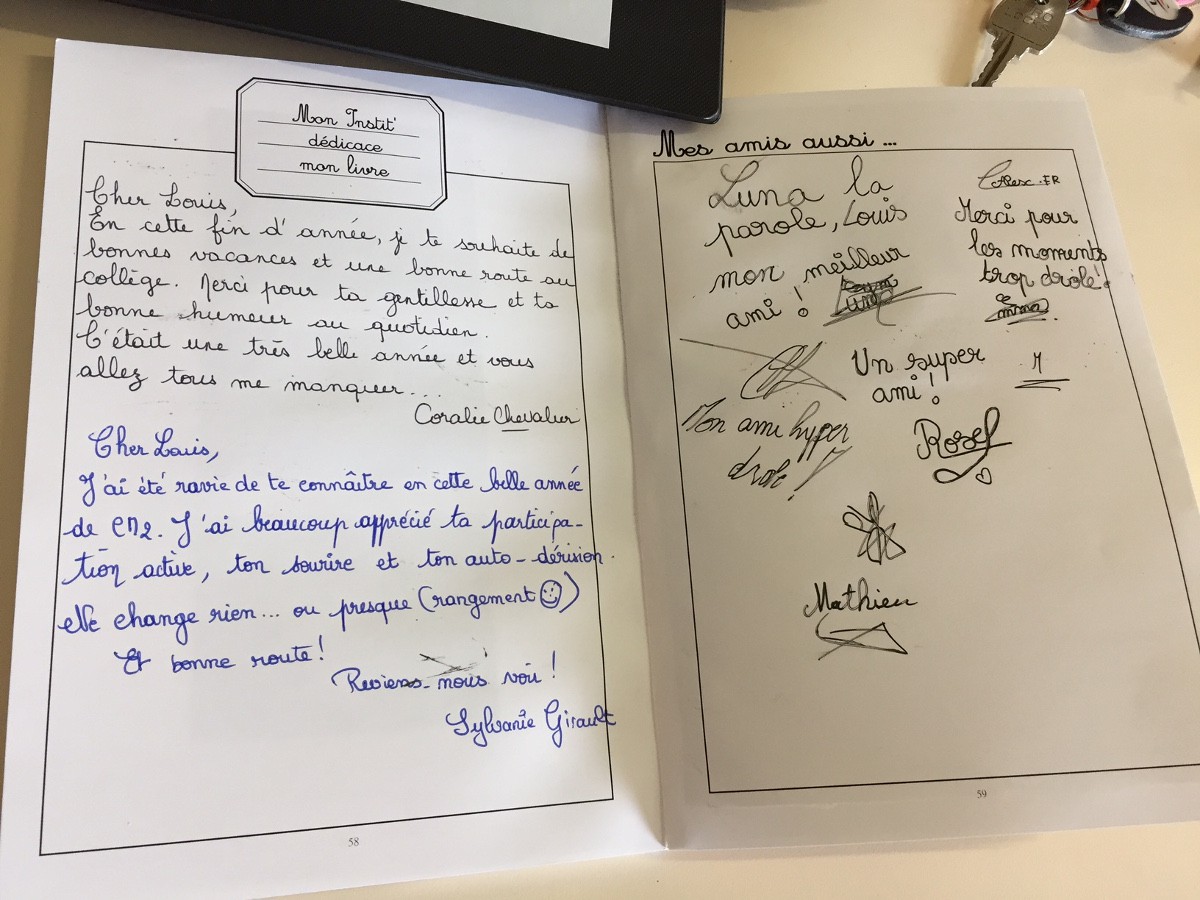 Mon Instit'
dédicace
mon livre
Cher Louis,
En cette fin d'année, je te souhaite de
bonnes vacances et une bonne route au
collège. Merci pour ta gentillesse et ta
bonne humeur au quotidien.
C'était une très belle année et vous
allez tous me manquer....
Coralie Chevalier
Cher Louis,
J'ai été ravie de te connaître en cette belle année
de CM2. J'ai beaucoup apprécié ta participa-
tion active, ton sourire et ton auto-dérision.
Ne change rien... ou presque (rangement ☺)
Et bonne route!
Reviens-nous voir!
Sylvanie Girault
58
Mes amis aussi ...
Luna la
parole, Louis
mon meilleur
ami!
Alex.FR
Merci pour
les moments
trop drôle!
emma
Un super
ami!
M
Mon ami hyper
drole!
Rose
Mathieu
59